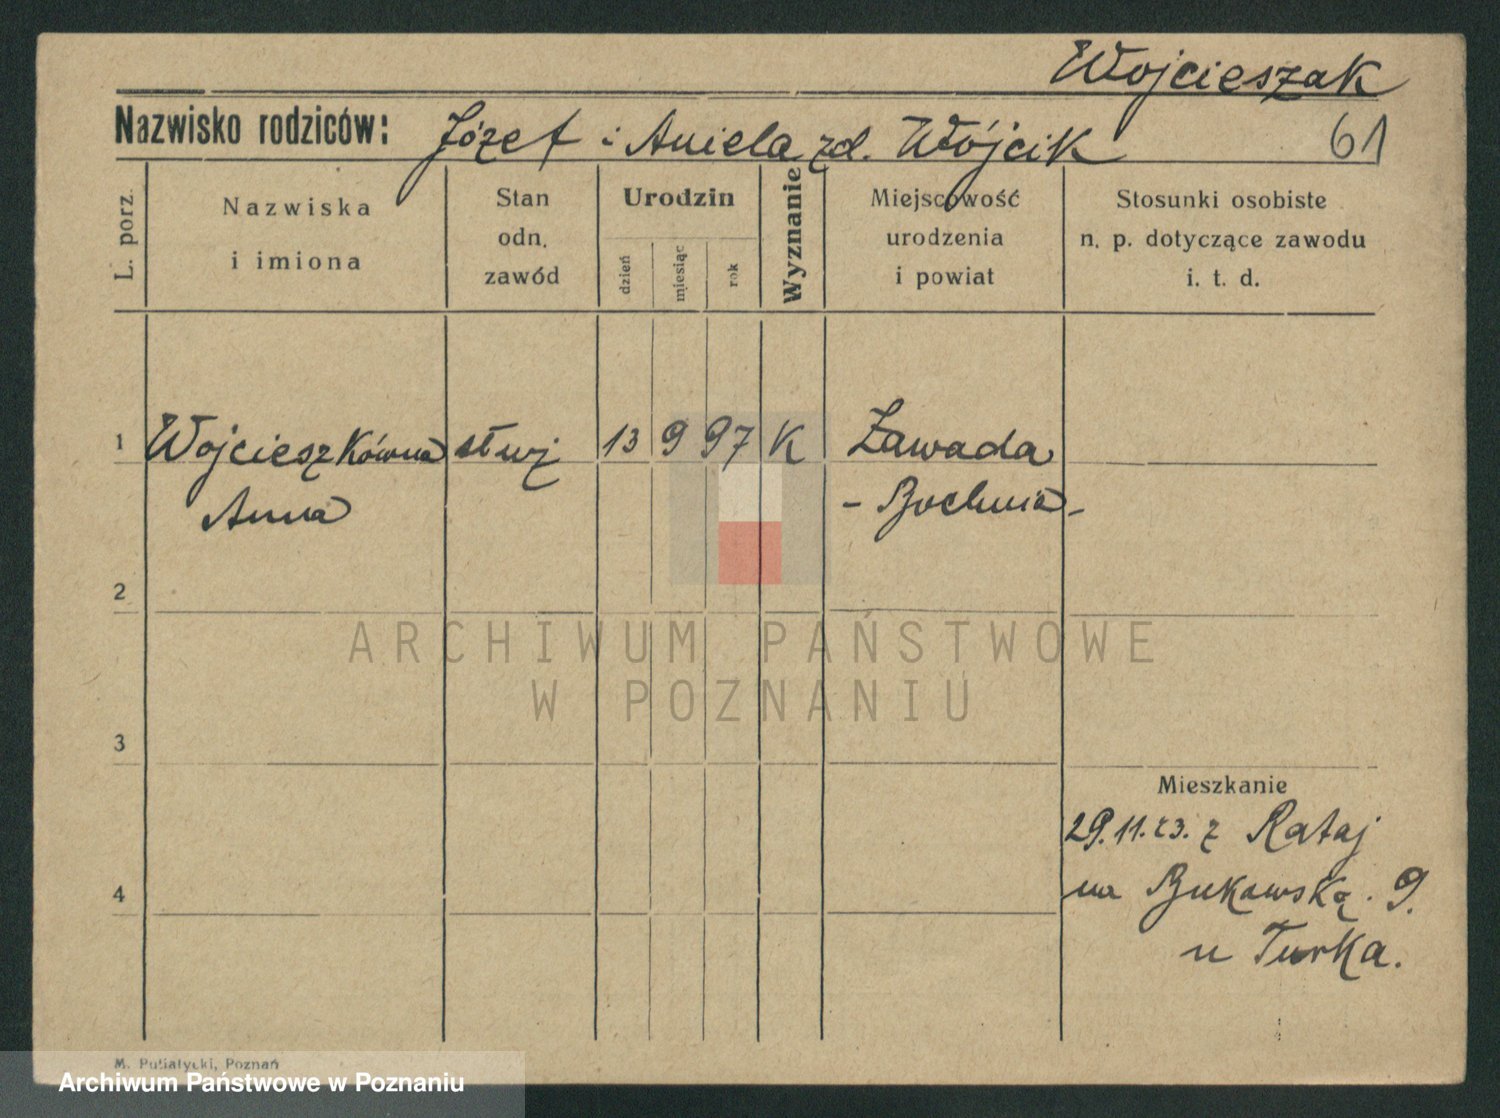 Wojcieszak
Nazwisko rodziców: Józef i Aniela zd. Wójcik
61
L. porz.
Nazwiska
i imiona
Stan
odn.
zawód
Urodzin
dzień
miesiąc
rok
Wyznanie
Miejscowość
urodzenia
i powiat
Stosunki osobiste
n. p. dotyczące zawodu
i. t. d.
1 Wojcieszkówna służ 13 9 97 K Zawada
Anna - Bochnia -
2
ARCHIWUM PAŃSTWOWE
W POZNANIU
3
Mieszkanie
29.11.23. z Rataj
4
na Bukowską. 9.
u Turka.
M. Putiatycki, Poznań
Archiwum Państwowe w Poznaniu